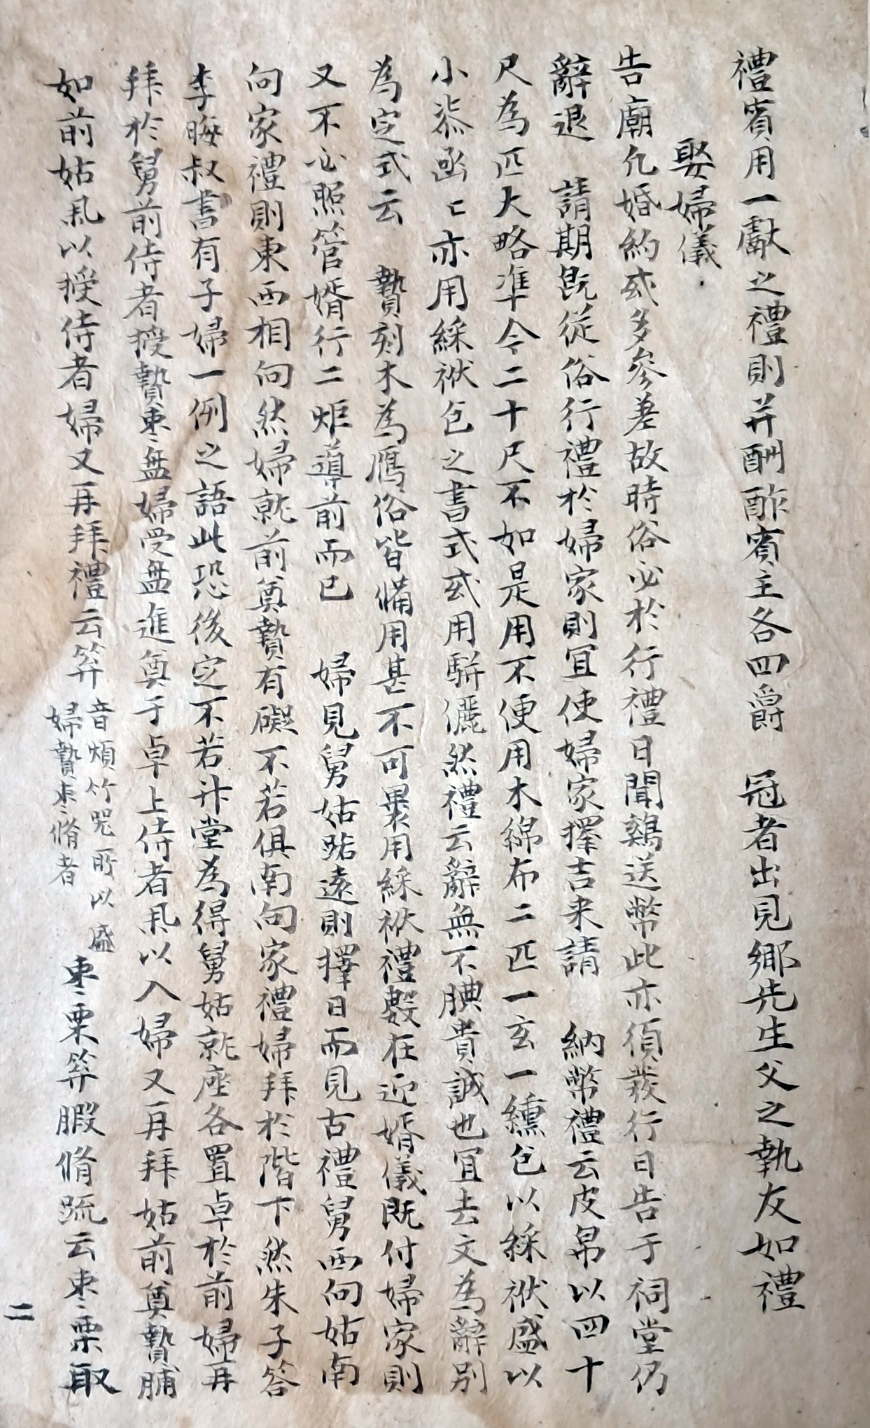 禮賓用一獻之禮則并酬酢賓主各四爵 冠者出見鄉先生父之執友如禮
娶婦儀
告廟凢婚約或多參差故時俗必於行禮日聞鷄送幣此亦須發行日告于祠堂仍
辭退 請期旣從俗行禮於婦家則冝使婦家擇吉来請 納幣禮云皮帛以四十
尺為匹大略準今二十尺不如是用不便用木綿布二匹一玄一纁包以綵袱盛以
小漆凾〻亦用綵袱包之書式或用駢儷然禮云辭無不腆貴誠也冝去文為辭別
為定式云 贄刻木為鴈俗皆備用甚不可褁用綵袱禮數在迎婿儀既付婦家則
又不必照管婿行二炬導前而已 婦見舅姑路遠則擇日而見古禮舅西向姑南
向家禮則東西相向然婦就前奠贄有礙不若俱南向家禮婦拜於階下然朱子答
李晦叔書有子婦一例之語此恐後定不若升堂為得舅姑就座各置卓於前婦再
拜於舅前侍者授贄枣盘婦受盘進奠于卓上侍者㒵以入婦又再拜姑前奠贄脯
如前姑㒵以授侍者婦又再拜禮云笲
音煩竹器所以盛
婦贄枣脩者
枣栗笲腶脩疏云枣栗取
二